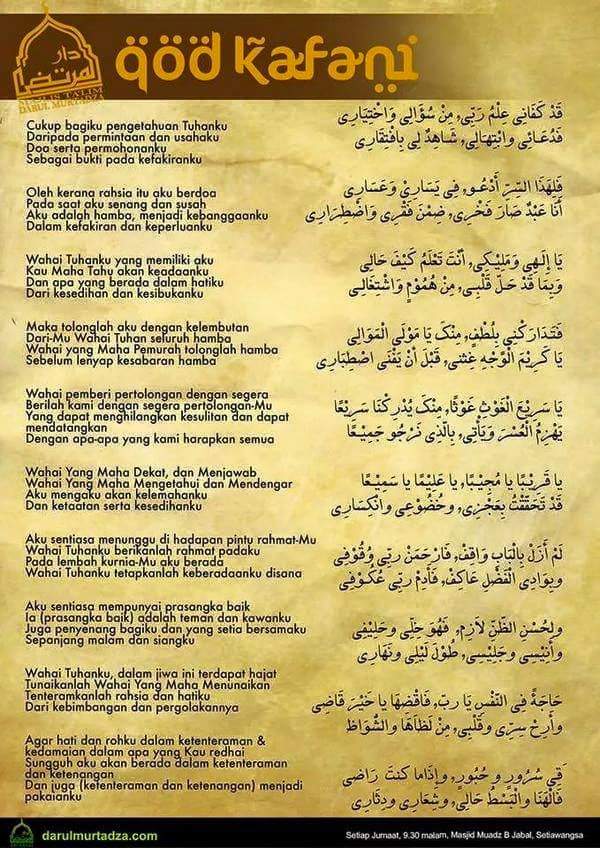 دار
المرتضى
MAJLIS TA'LIM
DARUL MURTADZA
qod kafani
Cukup bagiku pengetahuan Tuhanku
Daripada permintaan dan usahaku
Doa serta permohonanku
Sebagai bukti pada kefakiranku
قَدْ كَفَانِي عِلْمُ رَبِّي, مِنْ سُؤَالِي وَاخْتِيَارِي
فَدُعَائِي وَابْتِهَالِي, شَاهِدٌ لِي بِافْتِقَارِي
Oleh kerana rahsia itu aku berdoa
Pada saat aku senang dan susah
Aku adalah hamba, menjadi kebanggaanku
Dalam kefakiran dan keperluanku
فَلِهَذَا السِّرِّ أَدْعُو, فِي يَسَارِي وَعَسَارِي
أَنَا عَبْدٌ صَارَ فَخْرِي, ضِمْنَ فَقْرِي وَاضْطِرَارِي
Wahai Tuhanku yang memiliki aku
Kau Maha Tahu akan keadaanku
Dan apa yang berada dalam hatiku
Dari kesedihan dan kesibukanku
يَا إِلَهِي وَمَلِيْكِي, أَنْتَ تَعْلَمُ كَيْفَ حَالِي
وَبِمَا قَدْ حَلَّ قَلْبِي, مِنْ هُمُوْمٍ وَاشْتِغَالِي
Maka tolonglah aku dengan kelembutan
Dari-Mu Wahai Tuhan seluruh hamba
Wahai yang Maha Pemurah tolonglah hamba
Sebelum lenyap kesabaran hamba
فَتَدَارَكْنِي بِلُطْفٍ, مِنْكَ يَا مَوْلَى الْمَوَالِي
يَا كَرِيْمَ الْوَجْهِ غِثْنِي, قَبْلَ أَنْ يَفْنَى اصْطِبَارِي
Wahai pemberi pertolongan dengan segera
Berilah kami dengan segera pertolongan-Mu
Yang dapat menghilangkan kesulitan dan dapat
mendatangkan
Dengan apa-apa yang kami harapkan semua
يَا سَرِيْعَ الْغَوْثِ غَوْثًا, مِنْكَ يُدْرِكْنَا سَرِيْعًا
يَهْزِمُ الْعُسْرَ وَيَأْتِي, بِالَّذِي نَرْجُو جَمِيْعًا
Wahai Yang Maha Dekat, dan Menjawab
Wahai Yang Maha Mengetahui dan Mendengar
Aku mengaku akan kelemahanku
Dan ketaatan serta kesedihanku
يا قَرِيْبًا يا مُجِيْبًا, يا عَلِيْمًا يا سَمِيْعًا
قَدْ تَحَقَّقْتُ بِعَجْزِي, وخُضُوْعِي وانْكِسَارِي
Aku sentiasa menunggu di hadapan pintu rahmat-Mu
Wahai Tuhanku berikanlah rahmat padaku
Pada lembah kurnia-Mu aku berada
Wahai Tuhanku tetapkanlah keberadaanku disana
لَمْ أَزَلْ بِالْبَابِ وَاقِفْ, فَارْحَمَنْ رَبِّي وُقُوْفِي
وبِوَادِي الْفَضْلِ عَاكِفْ, فَأَدِمْ رَبِّي عُكُوْفِي
Aku sentiasa mempunyai prasangka baik
Ia (prasangka baik) adalah teman dan kawanku
Juga penyenang bagiku dan yang setia bersamaku
Sepanjang malam dan siangku
ولِحُسْنِ الظَّنِّ لاَزِمْ, فَهُوَ خِلِّي وحَلِيْفِي
وأَنِيْسِي وجَلِيْسِي, طُوْلَ لَيْلِي ونَهَارِي
Wahai Tuhanku, dalam jiwa ini terdapat hajat
Tunaikanlah Wahai Yang Maha Menunaikan
Tenteramkanlah rahsia dan hatiku
Dari kebimbangan dan pergolakannya
حَاجَةً فِي النَّفْسِ يَا رَبّ, فَاقْضِهَا يا خَيْرَ قَاضِي
وأَرِحْ سِرِّي وقَلْبِي, مِنْ لَظَاهَا والشُّوَاظ
Agar hati dan rohku dalam ketenteraman &
kedamaian dalam apa yang Kau redhai
Sungguh aku akan berada dalam ketenteraman
dan ketenangan
Dan juga (ketenteraman dan ketenangan) menjadi
pakaianku
فِي سُرُوْرٍ وحُبُوْرٍ, وإِذَاما كنتَ رَاضِي
فَالْهَنَا والْبَسْطُ حَالِي, وشِعَارِي ودِثَارِي
darulmurtadza.com
Setiap Jumaat, 9.30 malam, Masjid Muadz B Jabal, Setiawangsa